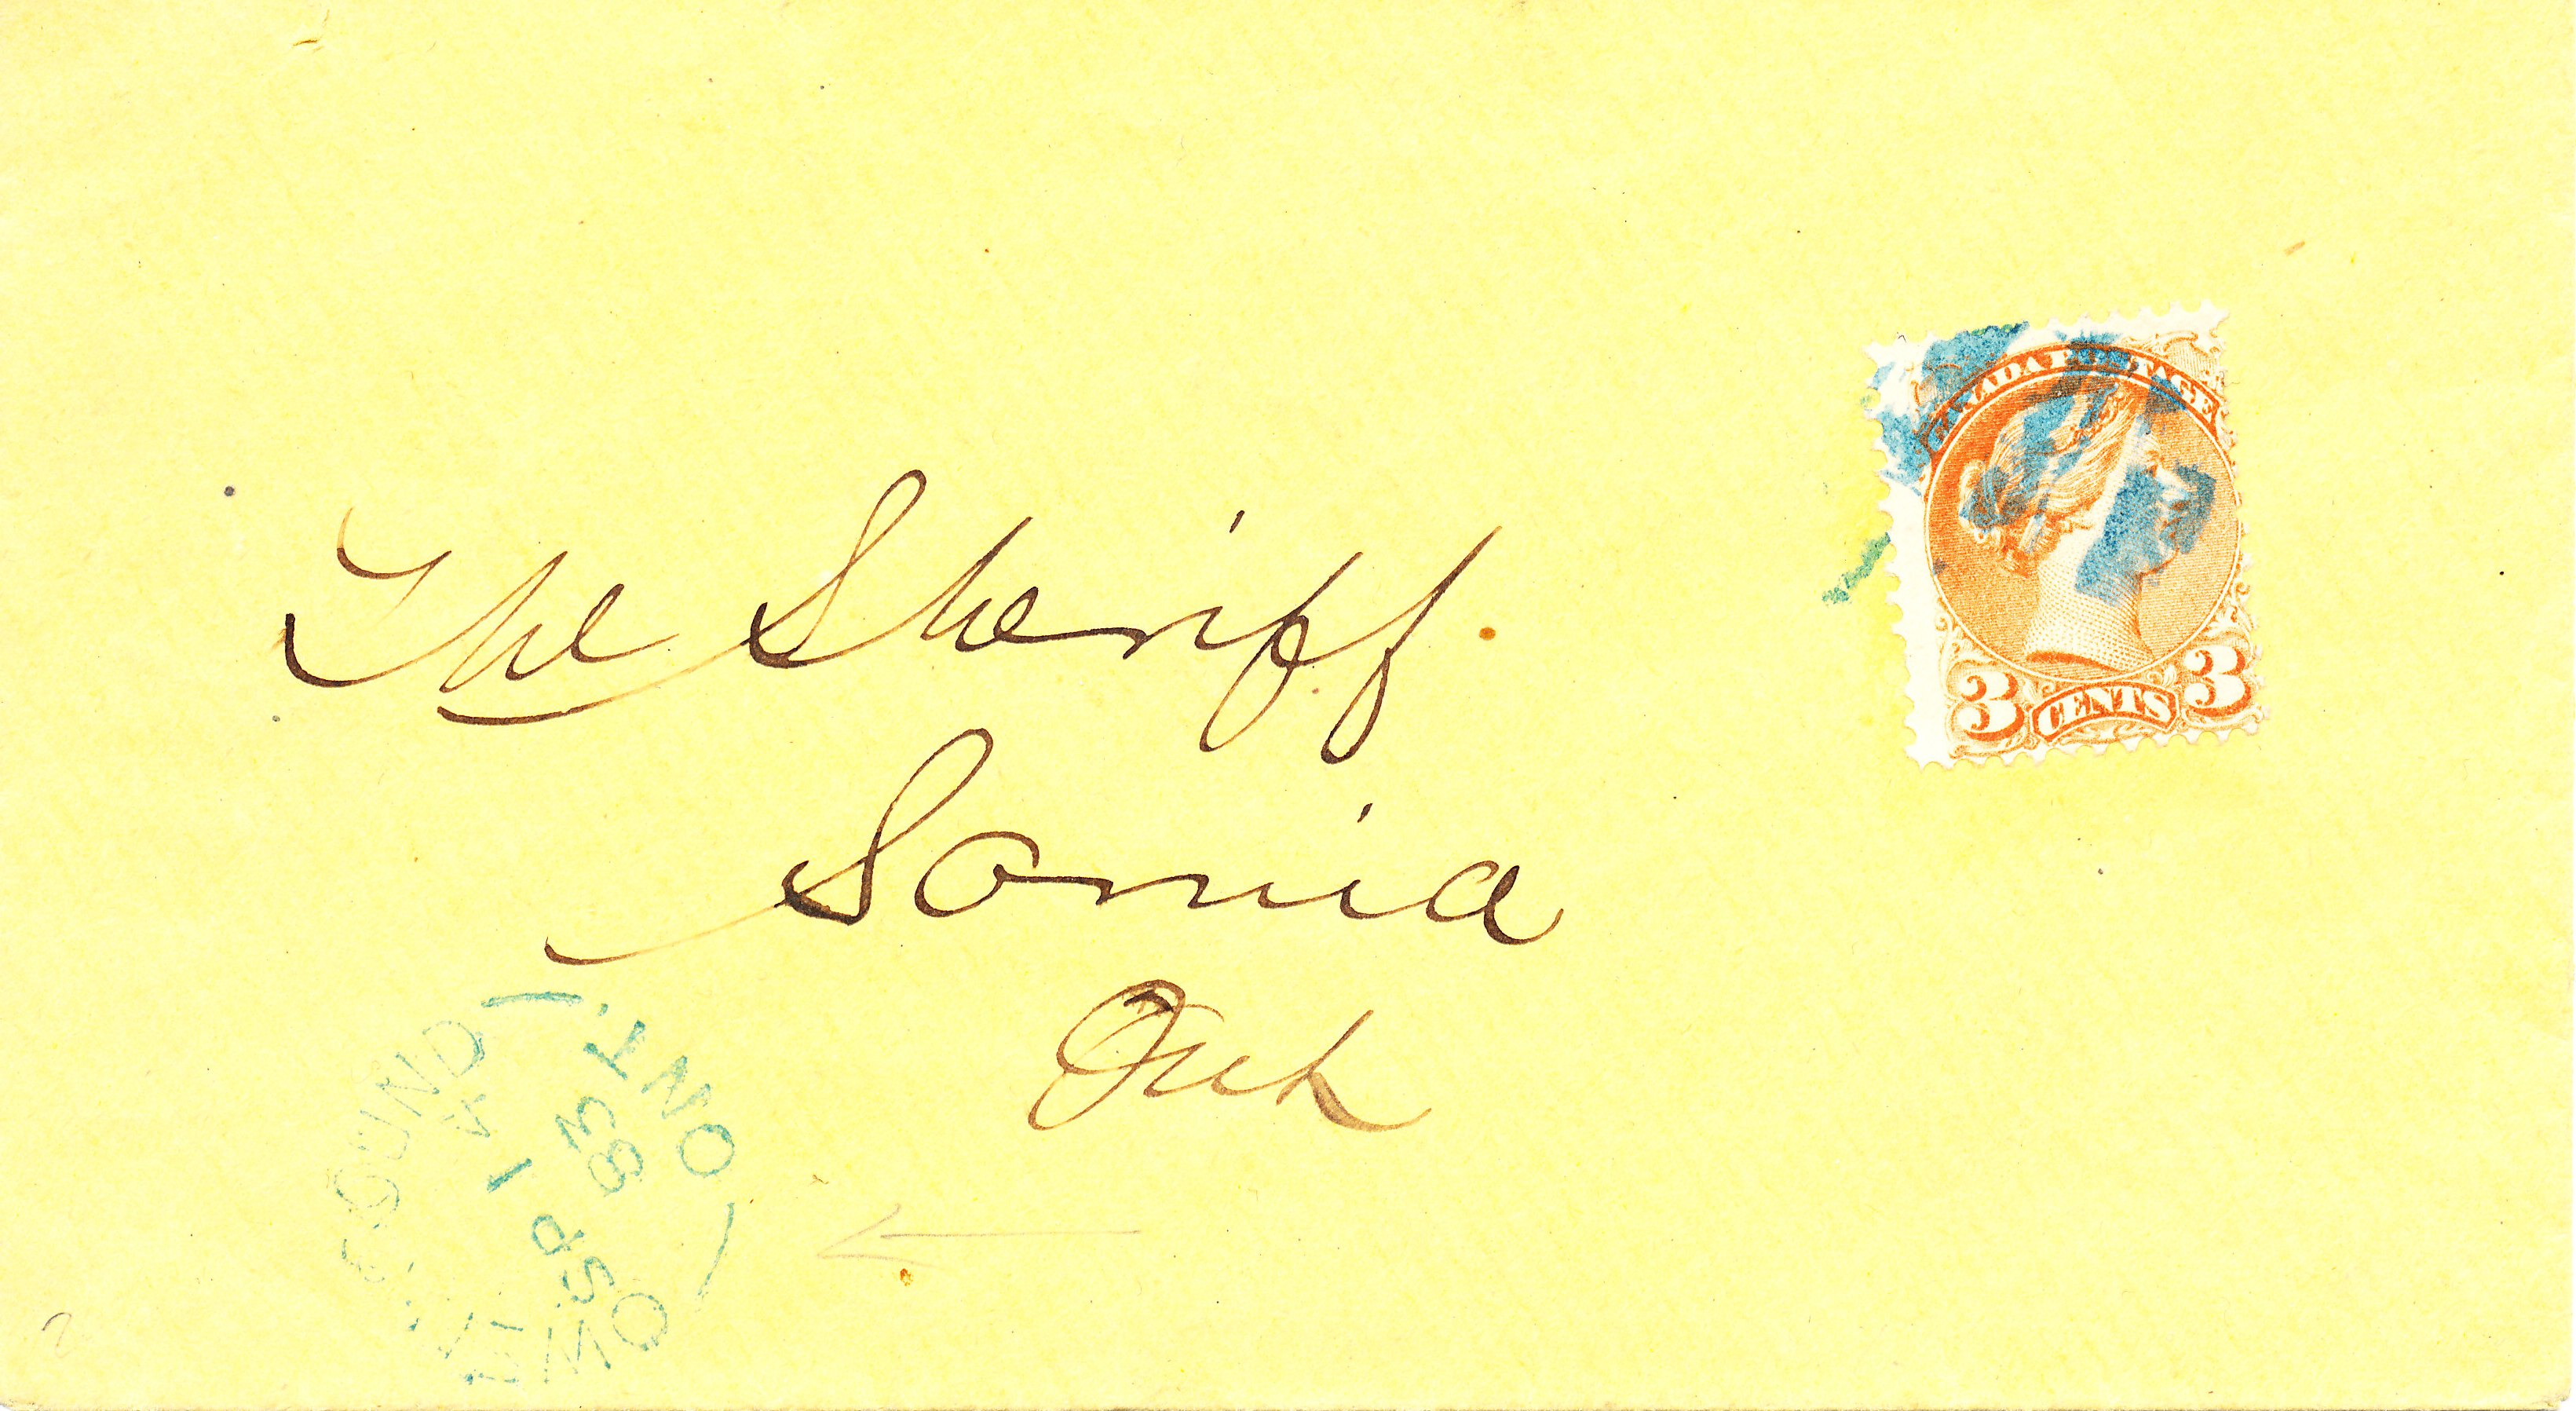 CANADA POSTAGE
3 CENTS 3
The Sheriff.
Sarnia
Ont
OWEN SOUND
ONT.
A
SP 1
83